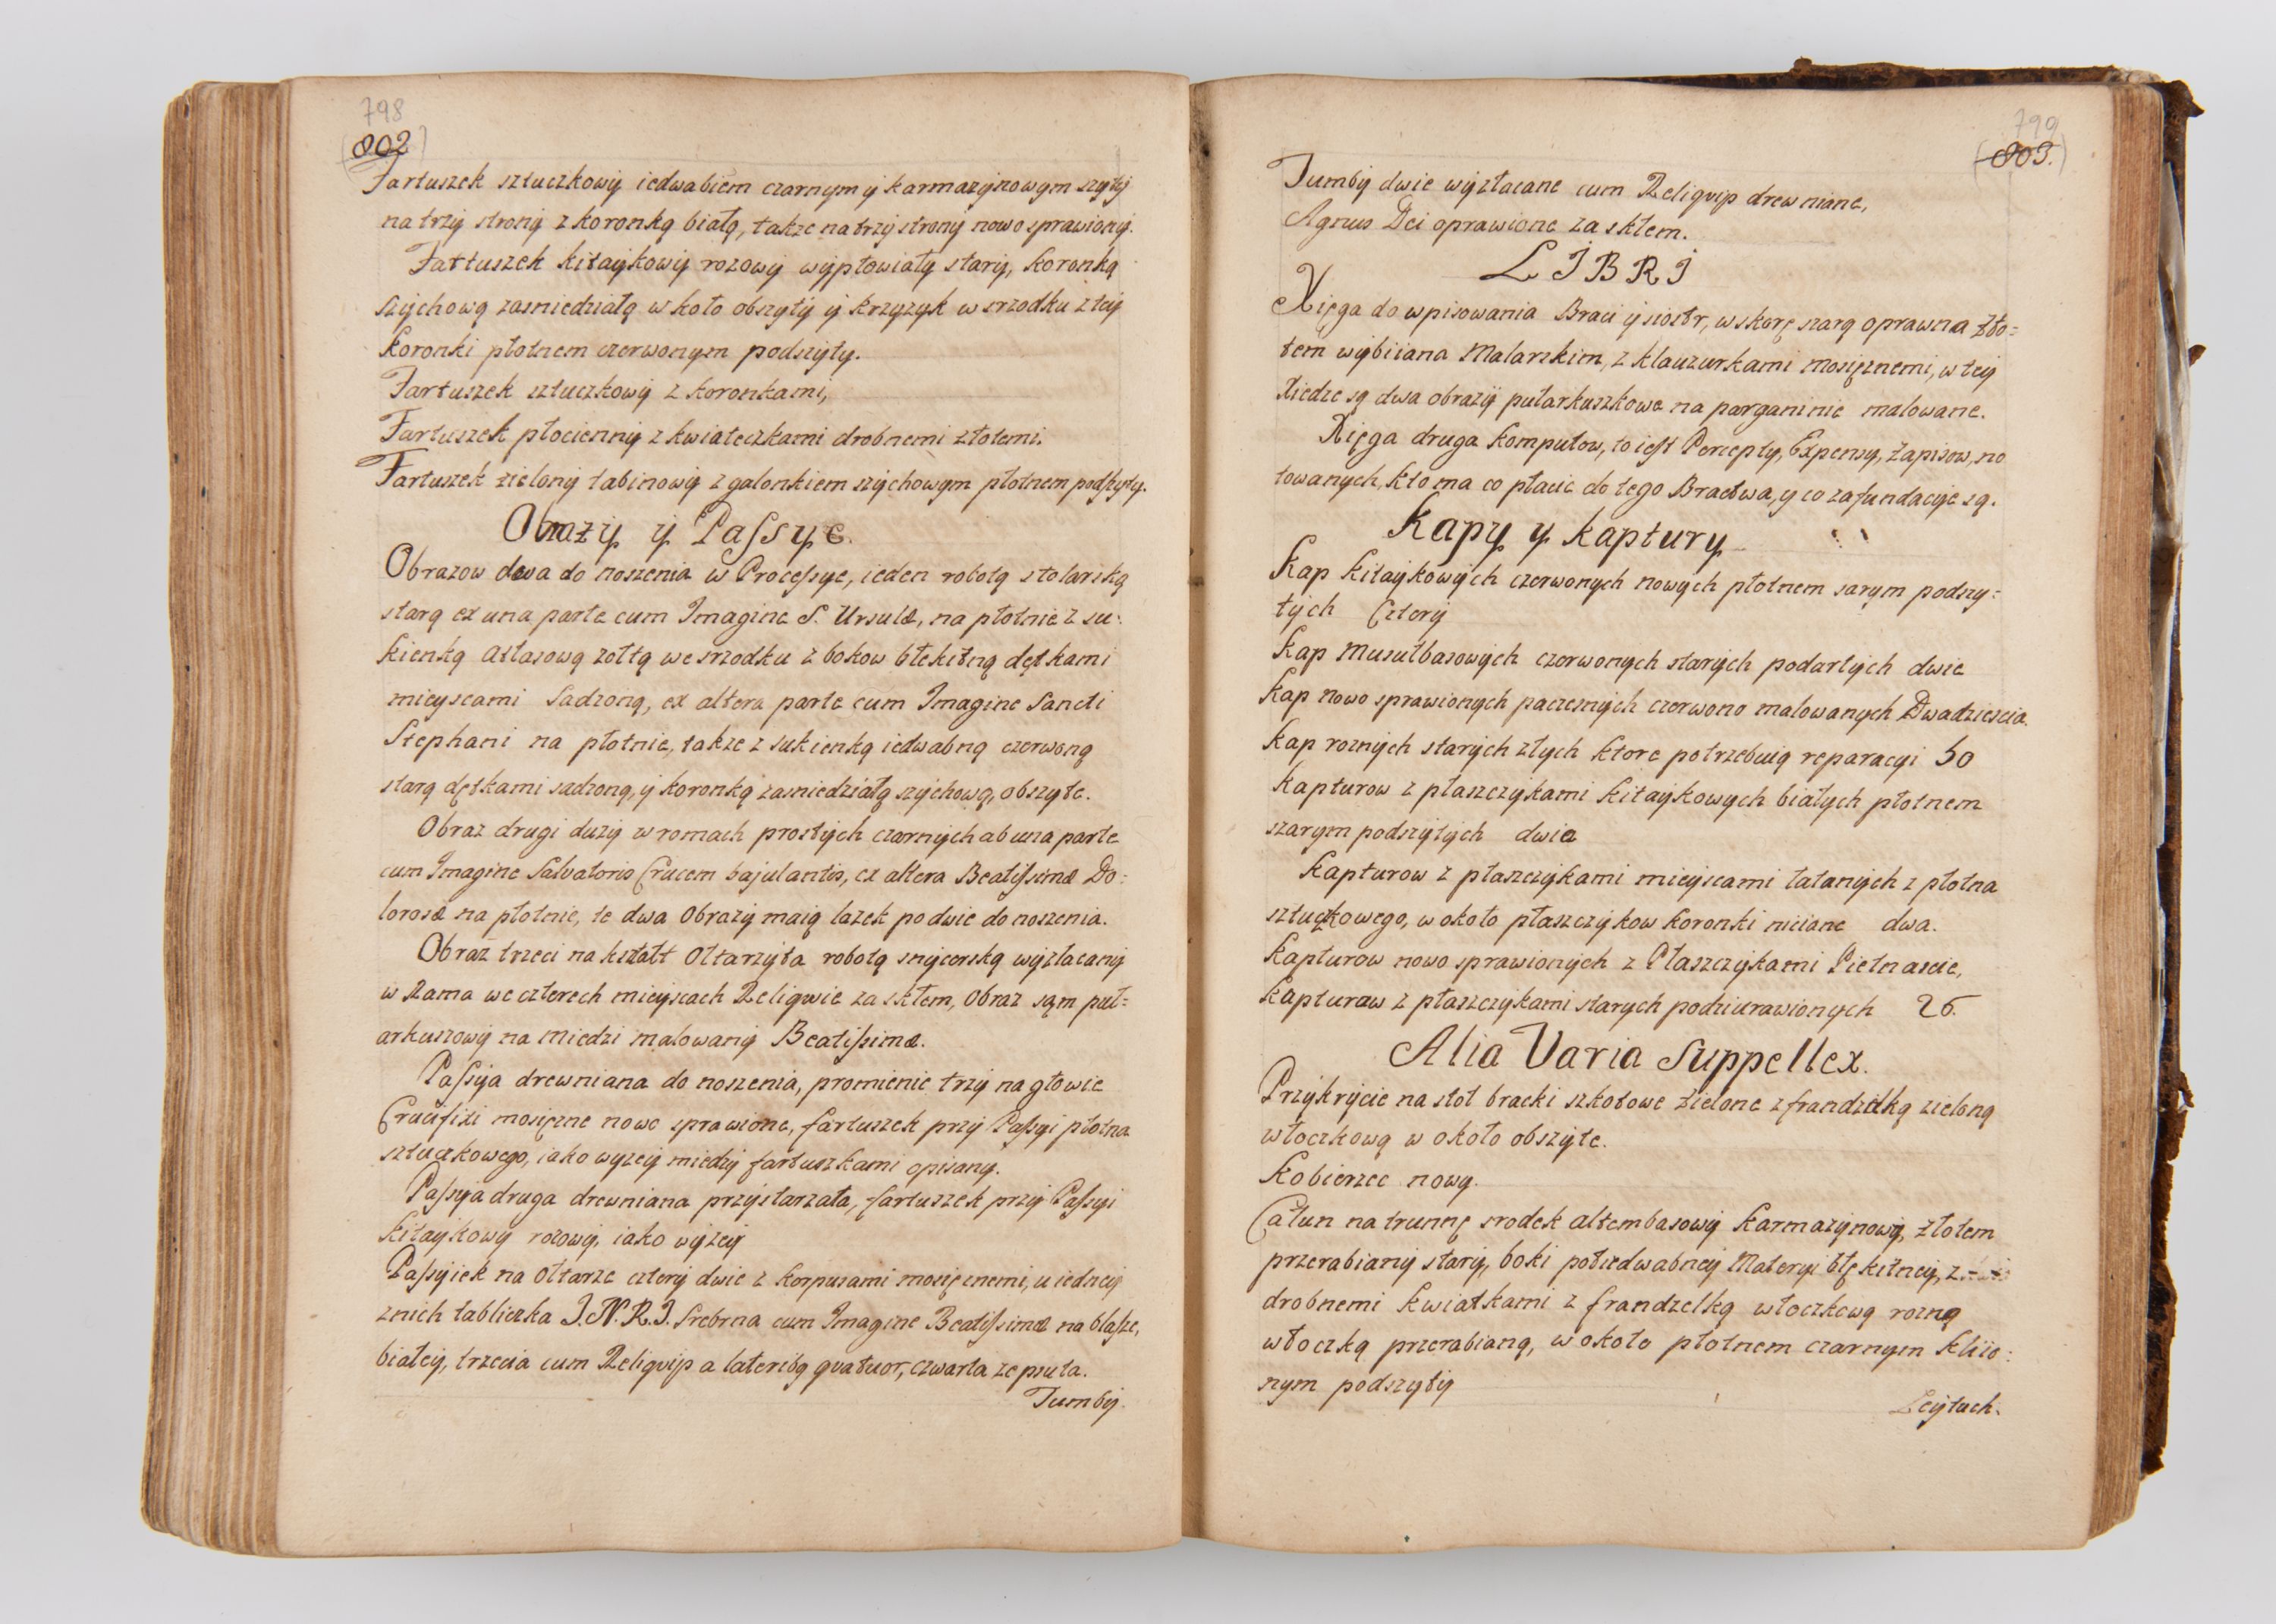 798
(802)
Fartuszek sztuczkowÿ iedwabiem czarnym ÿ karmazÿnowym szytÿ
na trzÿ stronÿ z koronką białą, także na trzÿ stronÿ nowo sprawionÿ.
Fartuszek kitaÿkowÿ rozowÿ wÿpłowiały starÿ, koronką
szÿchową zasniedziałą w koło obszytÿ ÿ krzyzyk w srzodku z teÿ
koronki płotnem czerwonym podszÿty.
Fartuszek sztuczkowÿ z koronkami,
Fartuszek płociennÿ z kwiateczkami drobnemi złotemi.
Fartuszek zielonÿ tabinowÿ z galonkiem szÿchowym płotnem podszyty.
Obrazÿ ÿ Passye.
Obrazow dwa do noszenia w Processye, ieden robotą stolarską
starą ex una parte cum Imagine S. Ursulæ, na płotnie z su:
kienką atłasową zołtą we srzodku z bokow błekitną dętkami
mieyscami sadzoną, ex altera parte cum Imagine Sancti
Stephani na płotnie, także z sukienką iedwabną czerwoną
starą dętkami sadzoną, ÿ koronką zasniedziałą szÿchową, obszyte.
Obraz drugi duzÿ w romach prostÿch czarnÿch ab una parte
cum Imagine Salvatoris Crucem bajulantis, ex altera Beatissimæ Do:
lorosæ na płotnie, te dwa Obrazÿ maią lazek po dwie do noszenia.
Obraz trzeci na kształt Ołtarzÿka robotą snÿcerską wÿzłacanÿ
w Rama we czterech mieÿscach Reliqwie za szkłem, Obraz sąm puł=
arkuszowÿ na miedzi malowanÿ Beatissimæ.
Passÿa drewniana do noszenia, promienie trzÿ na głowie
Crucifixi mosięzne nowo sprawione, fartuszek przÿ Passyi płotna
sztuczkowego, iako wyzeÿ miedzÿ fartuszkami opisany.
Passÿa druga drewniana przÿstarzała, fartuszek przÿ Passyi
kitaÿkowÿ rozowÿ, iako wÿzeÿ
Passÿiek na Ołtarze czterÿ dwie z korpusami mosięznemi, u iedneÿ
z nich tabliczka J.N.R.J. srebrna cum Imagine Beatissimæ na blasze,
białeÿ, trzecia cum Reliqvijs a lateribq quatuor, czwarta zepsuta.
Tumbÿ.
799
(803.)
Tumbÿ dwie wÿzłacane cum Reliqvijs drewniane,
Agnus Dei oprawione za szkłem.
LJBRJ
Xięga do wpisowania Braci ÿ siostr, w skorę szarą oprawna zło=
tem wÿbiiana Malarskim, z klauzurkami mosięznemi, w teÿ
Xiedze są dwa obrazÿ pułarkuszkowe na parganinie malowane.
Xięga druga komputow, to iest Percepty, Expensy, Zapisow, no
towanych, kto ma co płacic do tego Bractwa, y co za fundacÿe są.
Kapy y kaptury
Kap kitaÿkowÿch czerwonych nowych płotnem sarym podszy:
tÿch Czterÿ
Kap musułbasowÿch czerwonych starÿch podartÿch dwie
Kap nowo sprawionÿch paczesnÿch czerwono malowanych Dwadziescia.
Kap roznÿch starÿch złych ktore potrzebuią reparacÿi 50
Kapturow z płaszczÿkami kitaÿkowych białych płotnem
szarym podszÿtÿch dwia
Kapturow z płaszczÿkami mieÿscami łatanÿch z płotna
sztuczkowego, w około płaszczÿkow koronki niciane dwa.
Kapturow nowo sprawionÿch z Płaszczÿkami Pietnascie,
Kapturaw z płaszczÿkami starych podziurawionych 26.
Alia Varia Suppellex.
Przÿkrÿcie na stoł bracki szkotowe zielone z frandzelką zieloną
włoczkową w około obszyte.
Kobierzec nowy.
Całun na trunnę srodek altembasowÿ karmazÿnowÿ, złotem
przerabianÿ starÿ, boki połiedwabneÿ Materyi błękitneÿ, z
drobnemi kwiatkami z frandzelką włoczkową rozną
włoczką przerabianą, w około płotnem czarnym kliio:
nym podszytÿ
Leÿtuch.